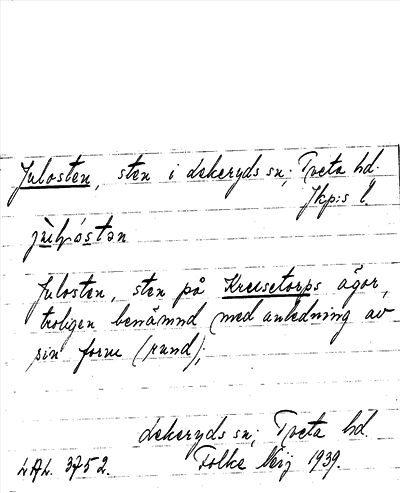 Julosten, sten i Lekeryds sn; Tveta hd.
Jkp:s l.
Julosten, sten på Kresetorps ägor,
troligen benämnd med anledning av
sin form (rund);
Lekeryds sn; Tveta hd.
LAL. 3752. Folke 1939.